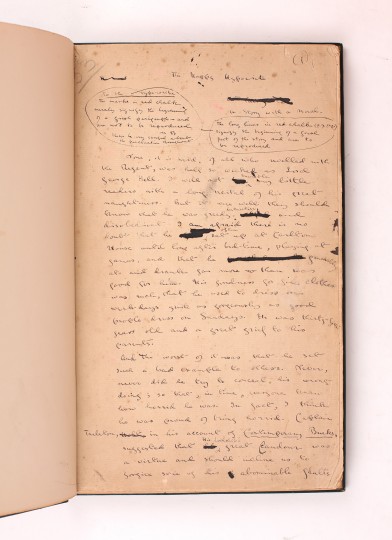 (1
The Happy Hypocrite
To the Typewriter
The marks in red chalk
merely signify the beginning
of a fresh paragraph and
are not to be reproduced
The long lines in red chalk
signify the beginning of a fresh
part of the story and are to
be reproduced
None, it is said, of all who revelled with
the Regent, was half so wicked as Lord
George Hell. I will not my little
readers with a long recital of his great
naughtiness. But it were well they should
know that he was greedy, and
disobedient. I am afraid there is no
doubt that he often sat up at Carlton
House until long after bed-time, playing at
games, and that he generally
ate and drank far more than was
good for him. His fondness for fine clothes
was such, that he used to dress on
week-days quite as gorgeously as good
people dress on Sundays. He was thirty-five
years old and a great grief to his
parents.
And the worst of it was that he set
such a bad example to others. Never,
never did he try to conceal his wrong-
doing; so that, in time, everyone knew
how horrid he was. In fact, I think
he was proud of being horrid. Captain
Tarleton, in his account of Contemporary Bucks,
suggested that his Lordship's great Candour was
a virtue and should incline us to
forgive some of his abominable faults